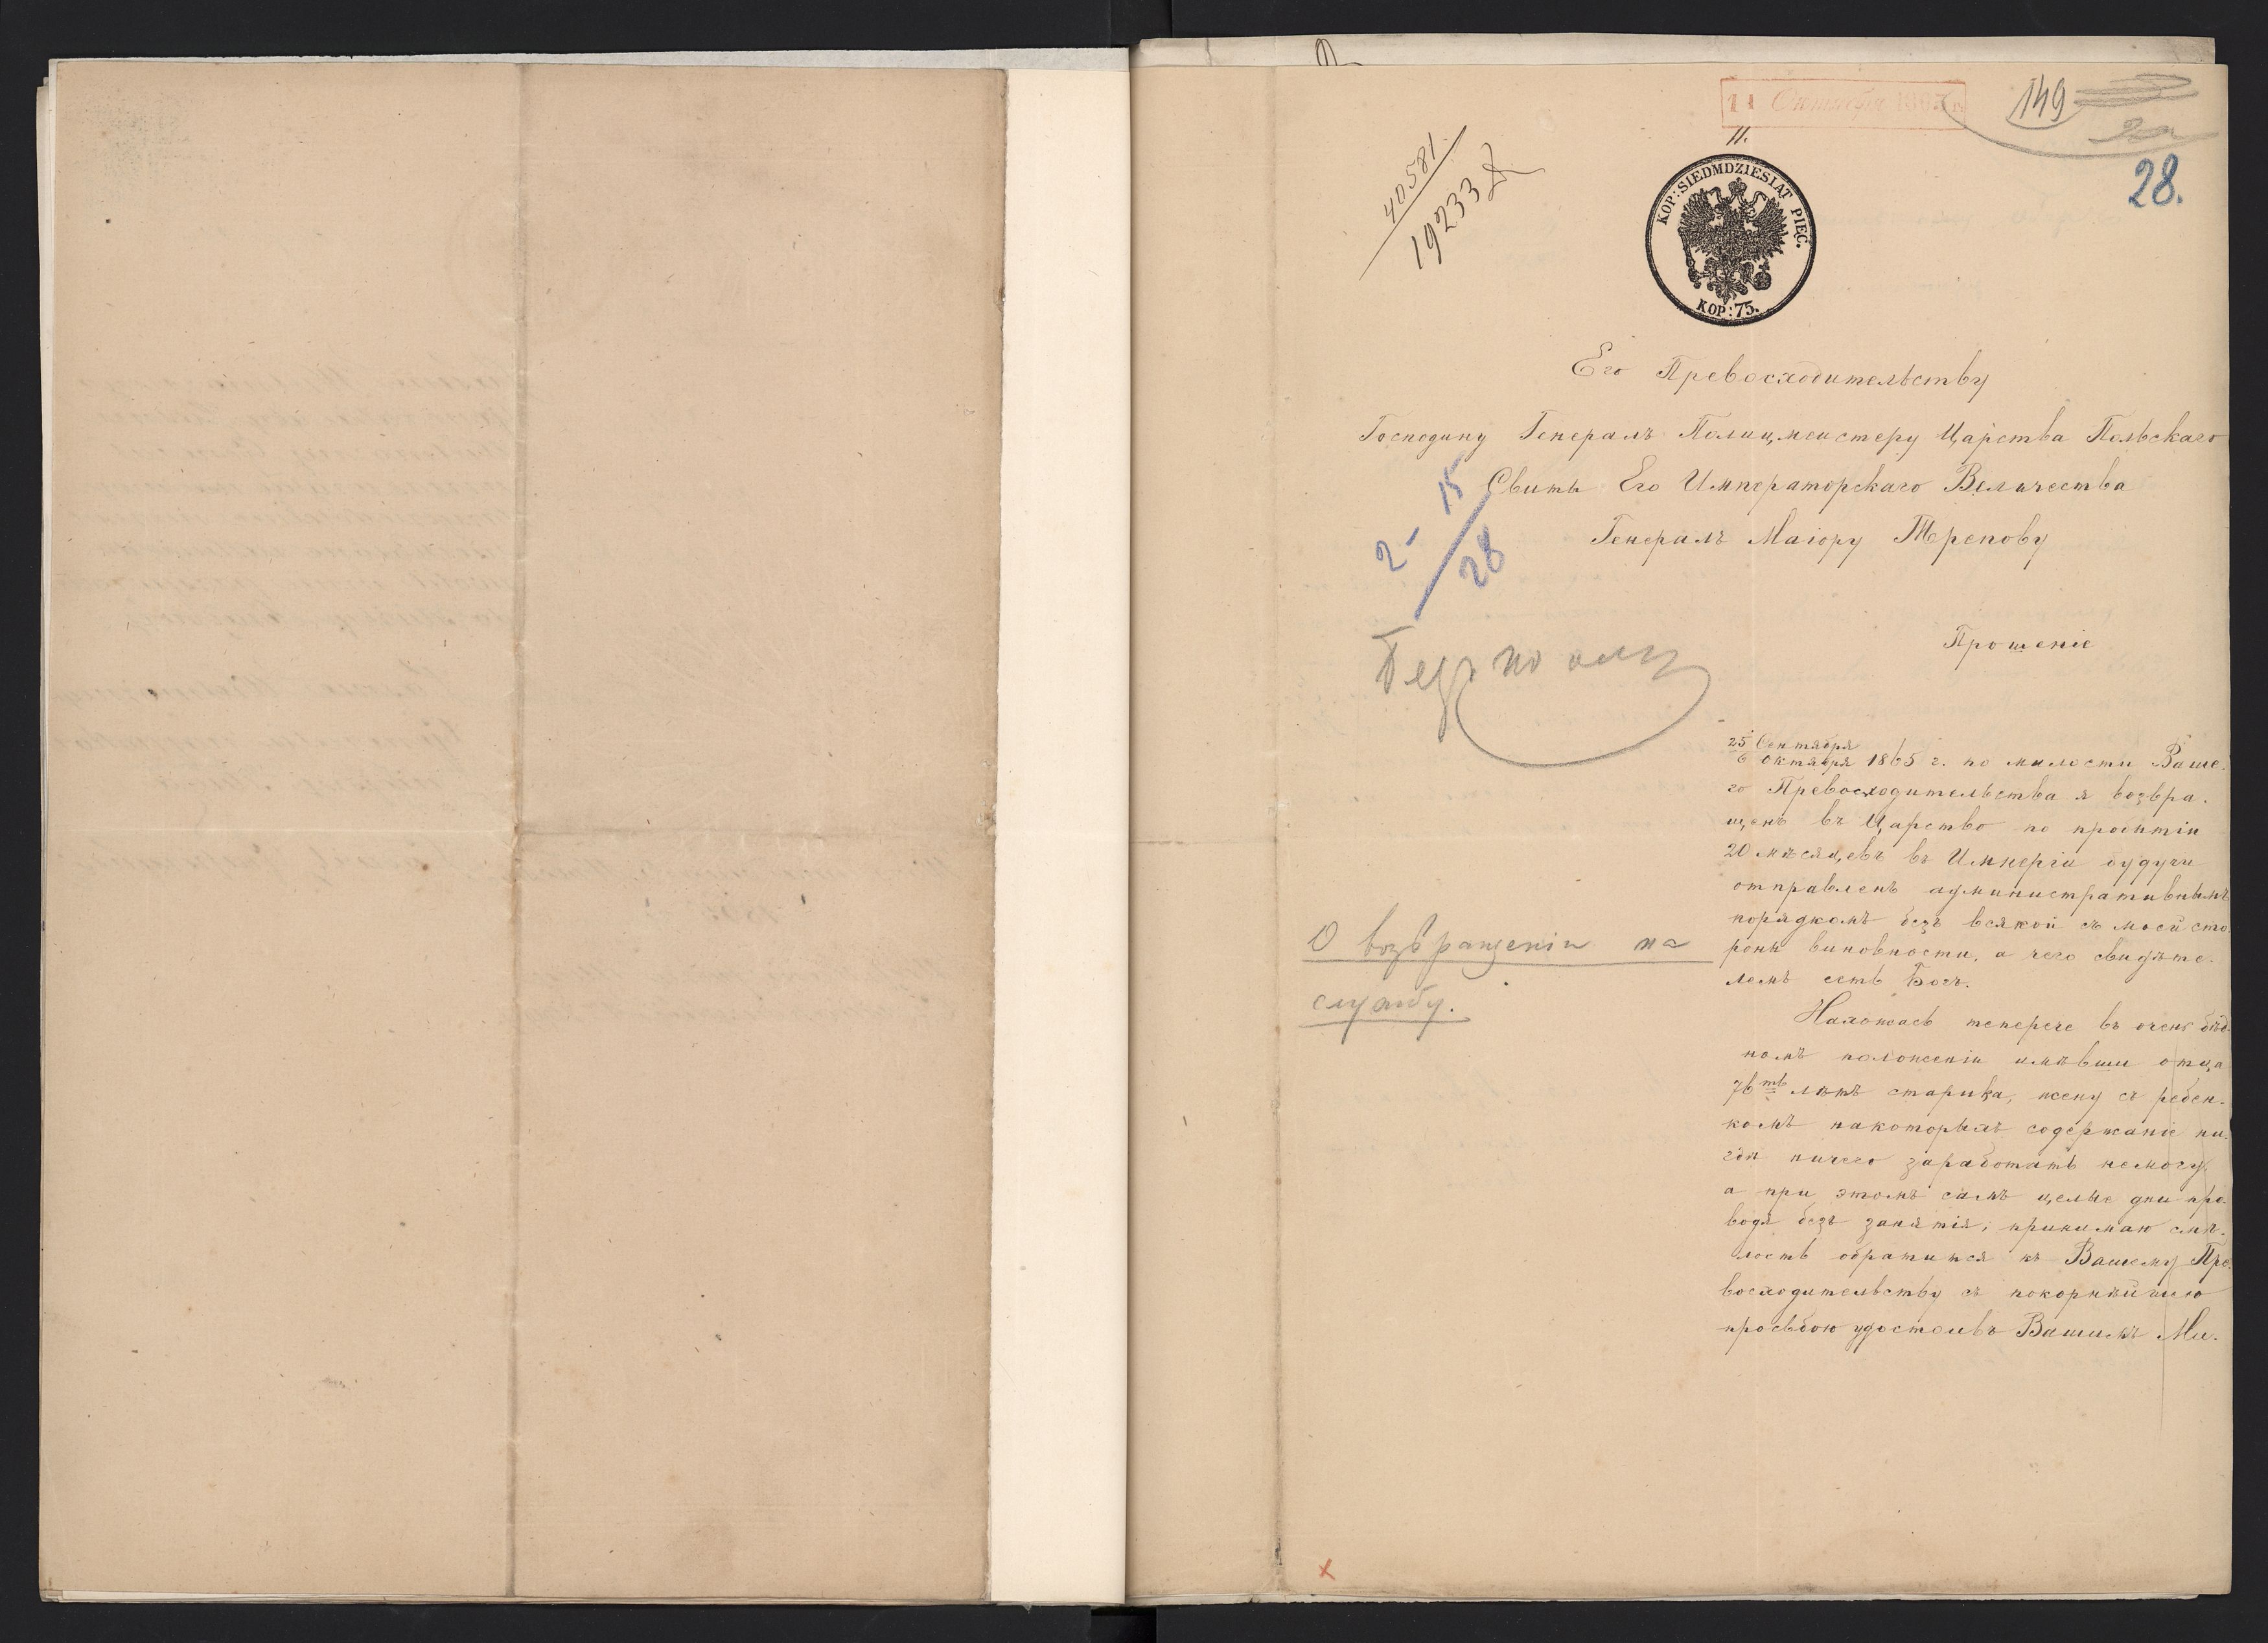 11 Октября 186
149
28.
11.
40581
19233
KOP: SIEDMDZIESIAT PIĘC.
KOP: 75.
Его Превосходительству
Господину Генералъ Полицмейстеру Царства Польскаго
Свиты Его Императорскаго Величества
Генералъ Маіору Трепову
2-15
28
Прошеніе
25 Сентября
6 Октября 1865 г. по милости Ваше-
го Превосходительства я возвра-
щенъ въ Царство по пробытіи
20 мѣсяцевъ въ Имперіи будучи
отправленъ административнымъ
порядкомъ безъ всякой съ моей сто-
роны виновности, а чего свидѣте-
лемъ есть Богъ.
О возвращеніи на
службу.
Находясь теперече въ очень бѣд-
номъ положеніи имѣвши отца
76ть лѣтъ старика, жену съ ребен-
комъ накоторыхъ содержаніе ни-
гдѣ ничего заработать немогу,
а при этомъ самъ целые дни про-
водя безъ занятія, принимаю смѣ-
лость обратится къ Вашему Пре-
восходительству съ покорнѣйшею
просьбою удостоивъ Вашимъ Ми-